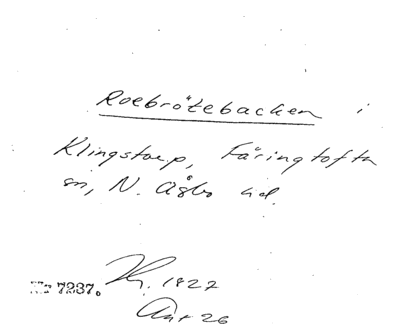 Roebrötebacken i
Klingstorp, Färingtofta
sn, N. Åsbo hd.
Nr 7237. 1827